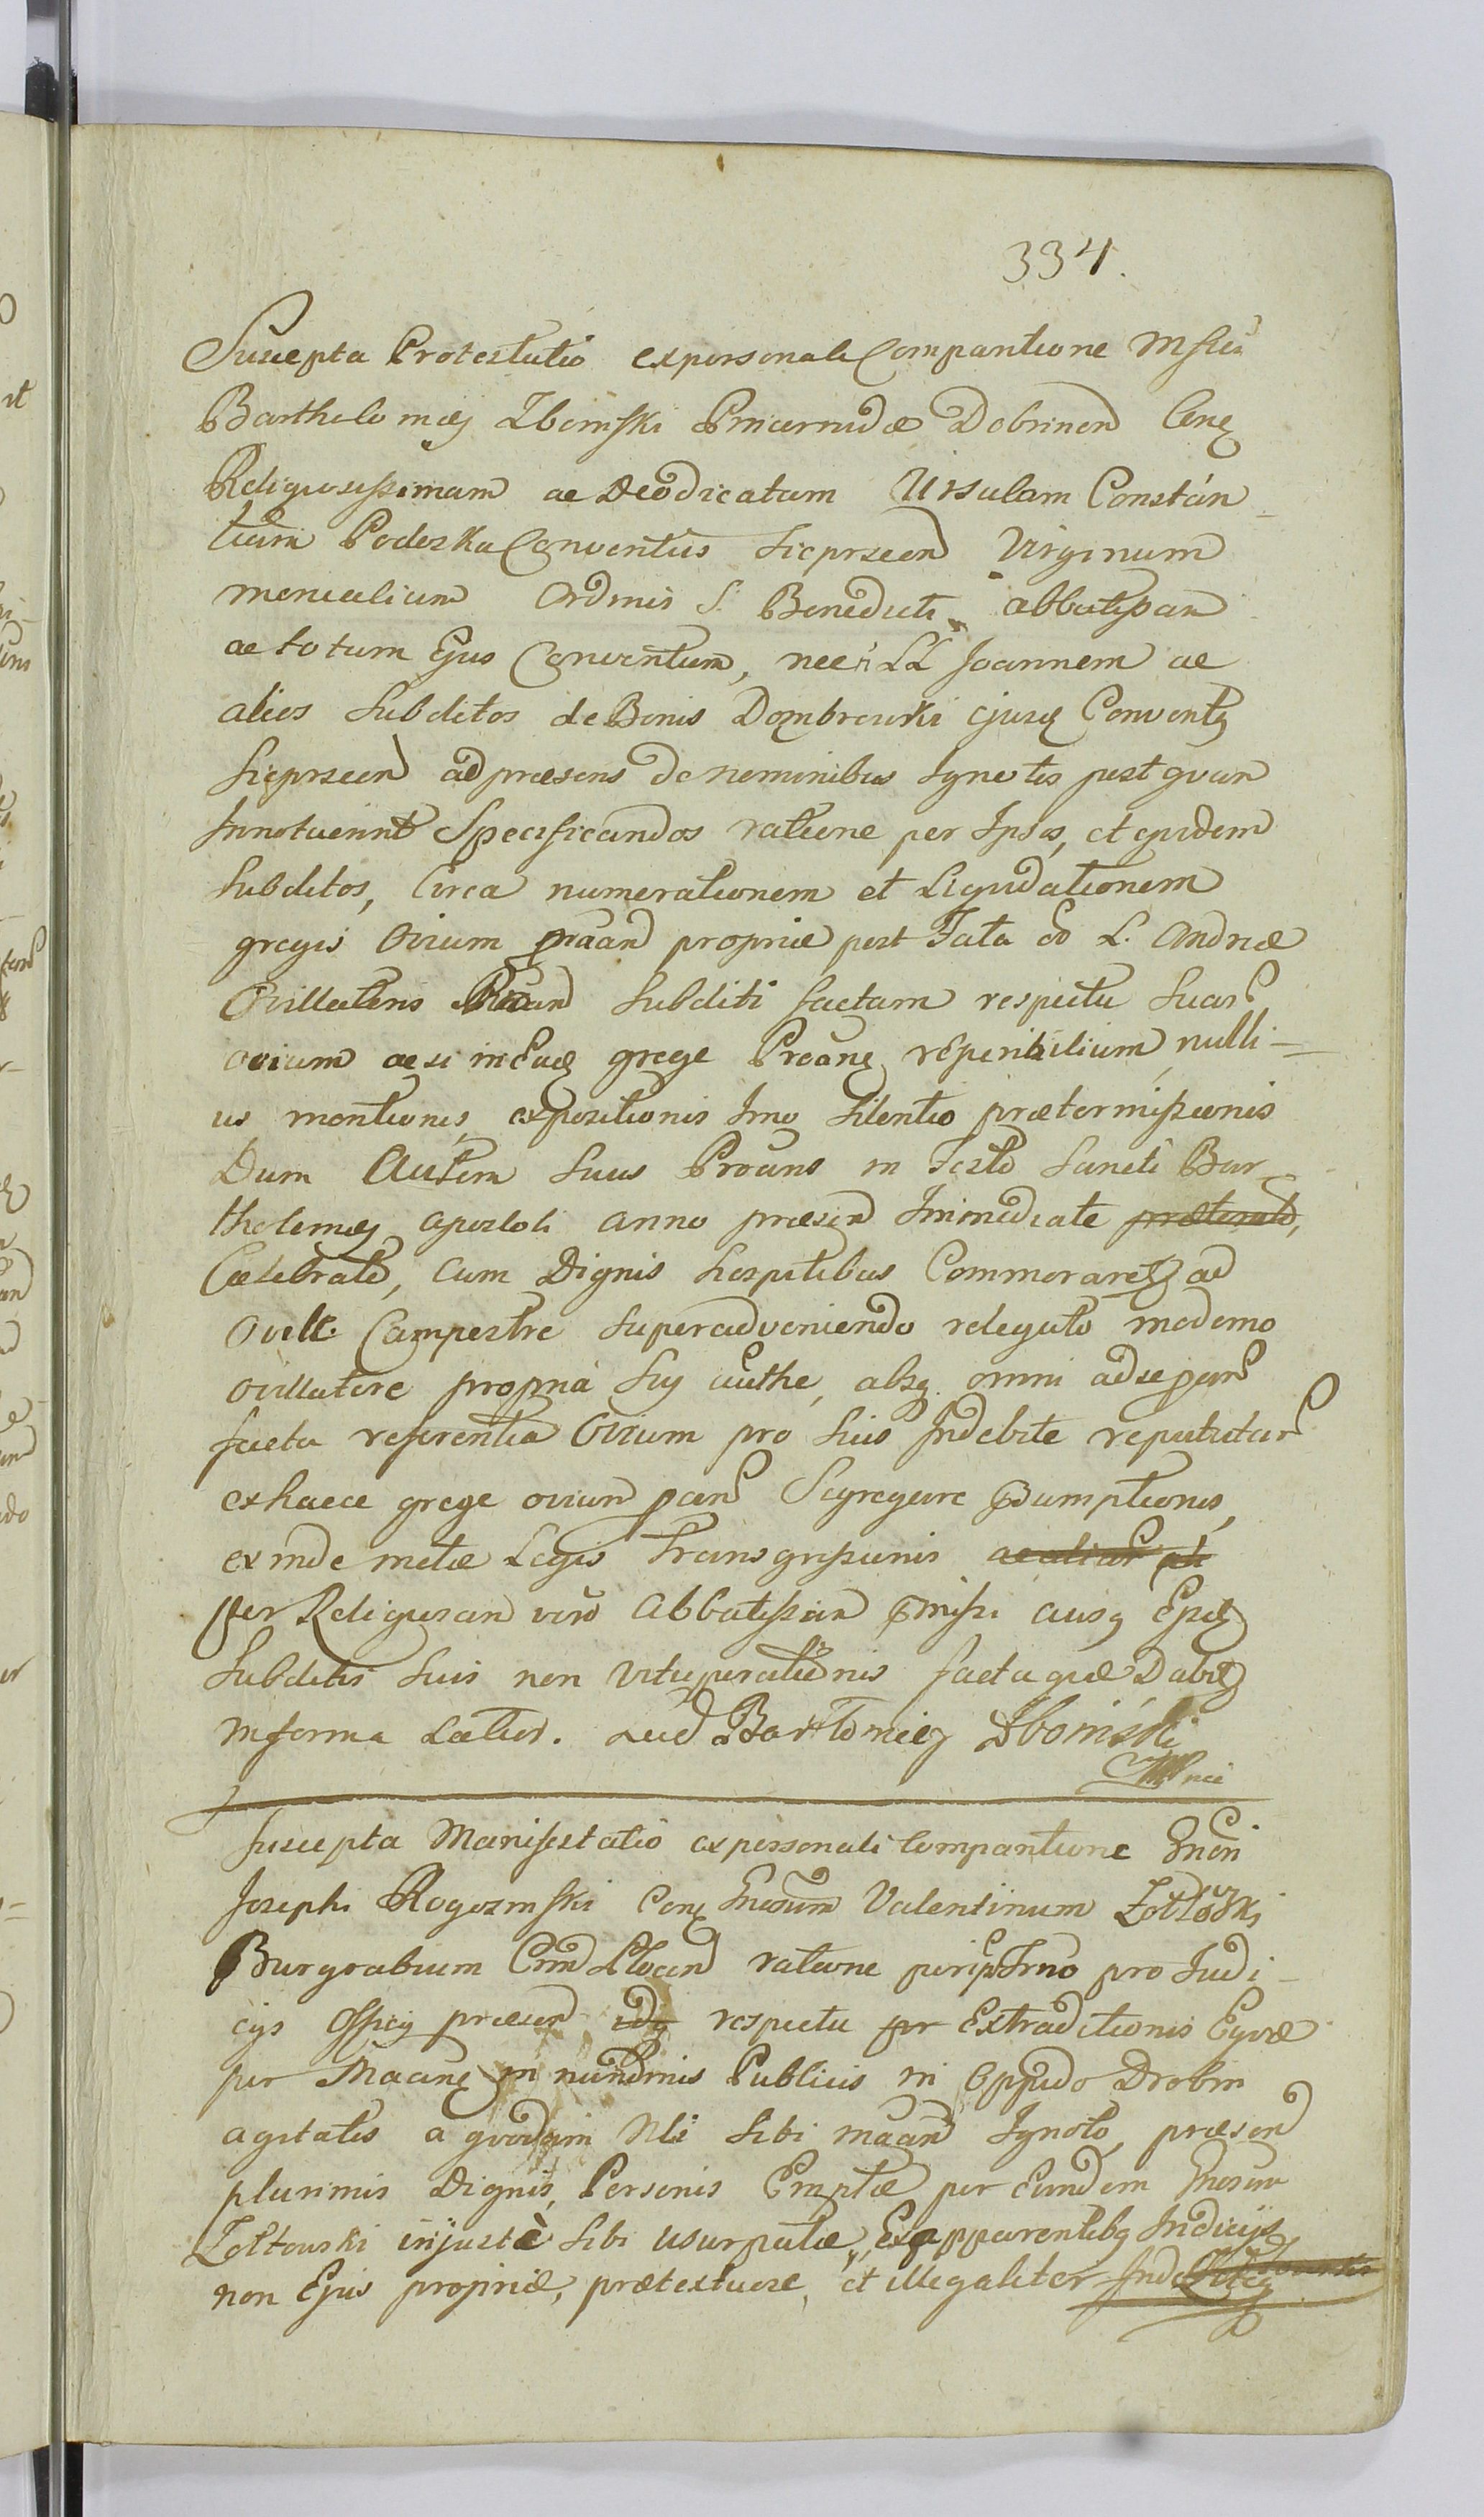 334.
Suscepta Protestatio ex personali Comparitione Msfici
Bartholomęj Zboinski Pincernidæ Dobrinen Conę
Religiosissimam ac Deo dicatam Ursulam Constan-
tiam Podezka Conventus Sieprscen Virginum
monialium Ordinis S. Benedicti abbatissam
ac totum Ejus Conventum, nec LL Joannem ac
alios Subditos de Bonis Dombrowki ejusq Conventq
Sieprscen ad præsens de nominibus Ignotis post quam
Innotuerint Specificandos ratione per Ipsos, et ejusdem
Subditos, Circa numerationem et Liquidationem
gregis Ovium proan propriæ post Fata L. Andreæ
Ovillatoris Subditi factam respectu Suar
ovium ac si in grege Proanę reperibilium, nulli-
us mentionis, expositionis Imo Silentio prætermissionis
Dum Autem Suus Proans in Festo Sancti Bar-
tholomęj apostoli anno præsen Immediate præterito,
Celebrato, Cum Dignis hospitibus Commoraretq ad
Ovile Campestre superadveniendo relegato moderno
ovillatore propria Suj authe, absq omni ad se
facta referentia Ovium pro Suis Indebite reputatar
ex haece grege ovium Segregare Psumptionis,
ex inde metæ Legis transgressionis ac aliar
per Religiosam vero Abbatissam pmissi ausq
Subditis Suis non Vituperationis facta quæ Dabit
in forma Latior. Bartlomiej Zboiński
Suscepta Manifestatio ex personali Comparitione Gnosi
Josephi Rogozinski Conę Gnosum Valentinum Zołtowski
Burgrabium Ploceń ratione pro Judi-
cijs Officij præsen respectu Extraditionis Equæ
per Maanę in nundinis Publicis in Oppido Drobin
agitatis a quodam Nli Sibi maań Ignoto, præsen
plurimis Dignis Personis Emptæ per Eundem Gnosum
Zołtowski injustè Sibi usurpatæ, Ex apparentibq Indicijs
non Ejus propriæ, prætextuose, et illegaliter